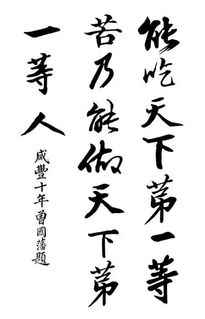 能吃天下苐一等
苦乃能做天下苐
一等人
咸豐十年曾國藩題